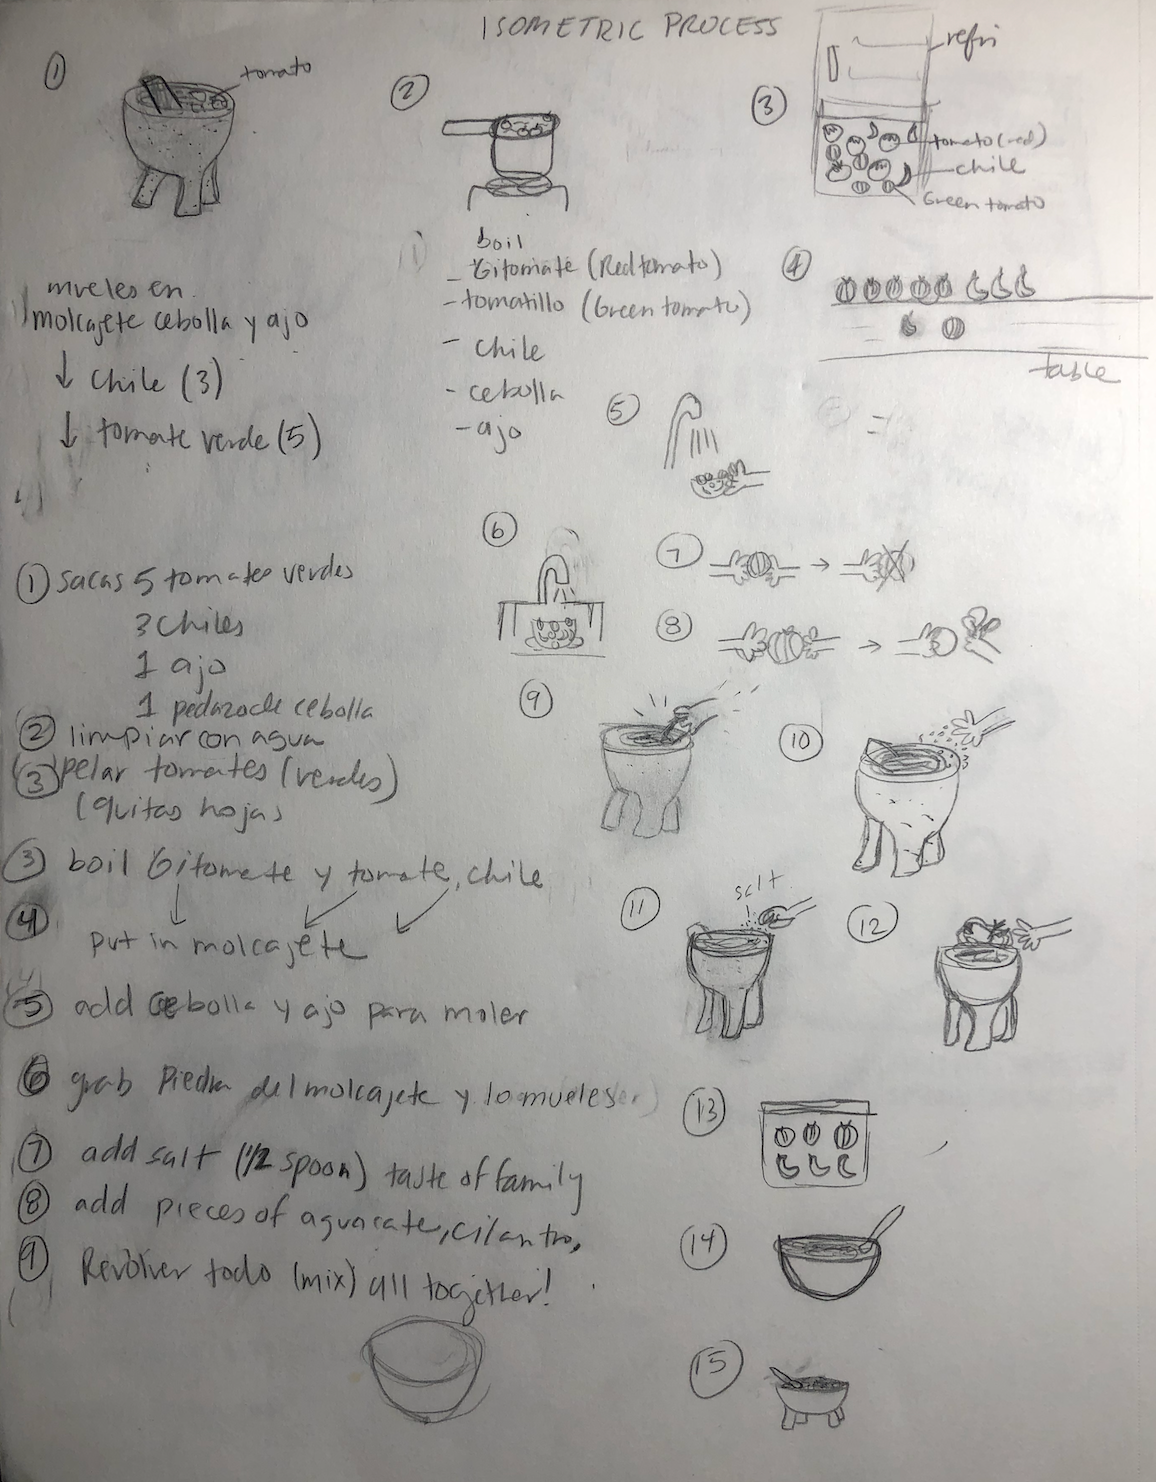 ISOMETRIC PROCESS
①
tomato
②
③
refri
tomato (red)
chile
Green tomato
mueles en
molcajete cebolla y ajo
↓ chile (3)
↓ tomate verde (5)
boil
- Gitomate (Red tomato)
- tomatillo (Green tomato)
- chile
- cebolla
- ajo
④
table
⑤
⑥
⑦
→
⑧
→
⑨
⑩
⑪
salt
⑫
⑬
⑭
⑮
① sacas 5 tomates verdes
3 chiles
1 ajo
1 pedazo de cebolla
② limpiar con agua
③ pelar tomates (verdes)
(quitas hojas)
③ boil Gitomate y tomate, chile
④ put in molcajete
⑤ add cebolla y ajo para moler
⑥ grab Piedra del molcajete y lo mueles
⑦ add salt (1/2 spoon) taste of family
⑧ add pieces of aguacate, cilantro,
⑨ Revolver todo (mix) all together!